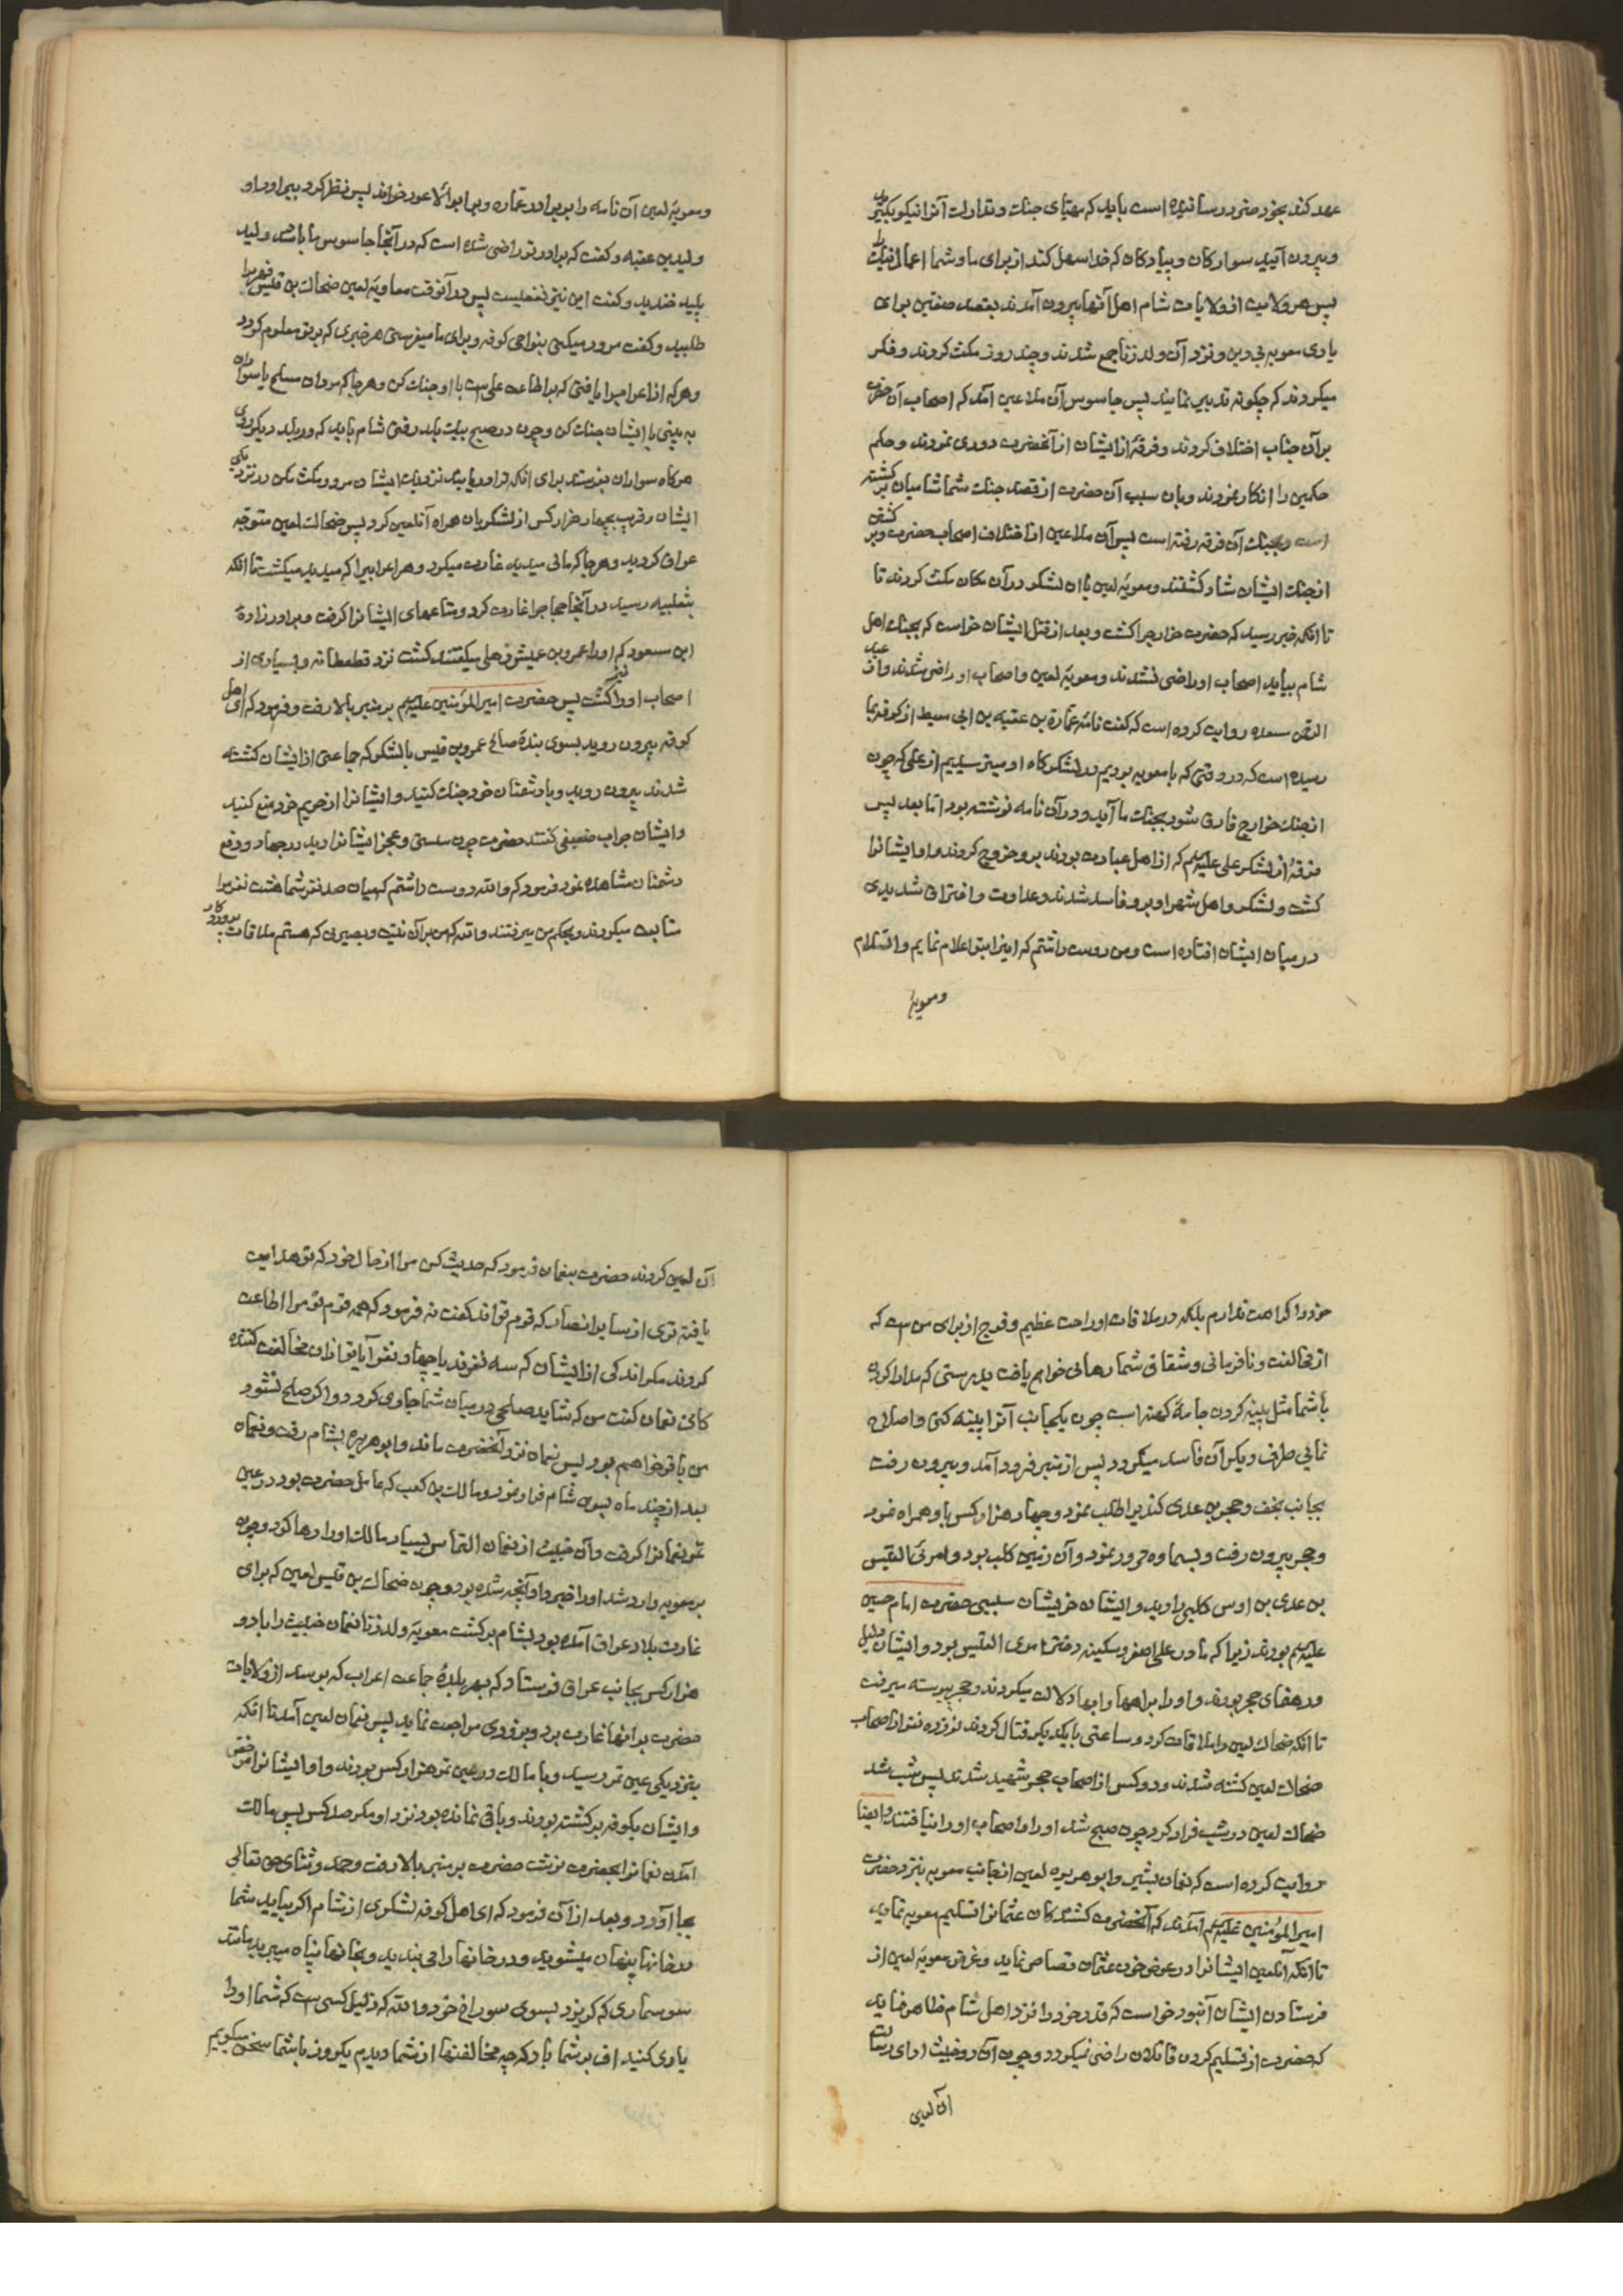 عهد کند بخود ضرر رسانیده است باید که مهیای جنك و تدارك آنرا نیکو بکنید
و بیرون آیید سوارکان و پیادکان که خدا سهل کند از برای ما و شما اعمال خیرات را
پس هر ولایت از ولایات شام اهل آنها بیرون آمدند بقصد صفین برای
یاری معویه بی دین و نزد آن ولد زنا جمع شدند و چند روز مکث کردند و فکر
میکردند که چکونه تدبیر نمایند پس جاسوس آن ملاعین آمد که اصحاب آن حضرت
بر آن جناب اختلاف کردند و فرقهٔ از ایشان از آنحضرت دوری نمودند و حکم
حکمین را انکار نمودند و بان سبب آن حضرت از قصد جنك شما شامیان بر کشته
است و بجنك آن فرقه رفته است پس آن ملاعین از اختلاف اصحاب حضرت و بر کشتن
از جنك ایشان شاد کشتند و معویهٔ لعین با ان لشکر در آن مکان مکث کردند تا
تا انکه خبر رسید که حضرت خوارج را کشت و بعد از قتل ایشان خواست که بجنك اهل
شام بیاید اصحاب او راضی نشدند و معویهٔ لعین و اصحاب او راضی شدند و از عبد
الرحمن مسعده روایت کرده است که کفت نامهٔ عمارة بن عقبه بن ابی معیط از کوفه بما
رسیده است که در وقتی که با معویه بودیم در لشکرکاه او میترسیدیم از علی که چون
از جنك خوارج فارغ شود بجنك ما آید و در آن نامه نوشته بود اما بعد پس
فرقهٔ از لشکر علی علیه السلم که از اهل عبادت بودند بر او خروج کردند و او ایشانرا
کشت و لشکر و اهل شهر او بر او فاسد شدند و عداوت و افتراق شدیدی
در میان ایشان افتاده است و من دوست داشتم که اینرا بتو اعلام نمایم والسلام
و معویهٔ
و معویهٔ لعین آن نامه را بر برادر عماره و بر ابو الاعور خواند پس نظر کرد ببرادر او
ولید بن عقبه و کفت که برادر تو راضی شده است که در آنجا جاسوس ما باشد ولید
پلید خندید و کفت این نیز نفعیست پس در آنوقت معاویهٔ لعین ضحاك بن قیس فهر را
طلبید و کفت مرور میکنی بنواحی کوفه و برای ما میفرستی هر خبری که بر تو معلوم کردد
و هر که از اعراب را یافتی که بر اطاعت علی است با او جنك کن و هر جا که مردان مسلح یا سواران
به بینی با ایشان جنك کن و چون در صبح بیك بلد رفتی شام باید که در بلد دیکر روی
هر کاه سواران بفرستد برای انکه ترا دریابند نزدیك ایشان مرو و مکث مکن در نزدیکی
ایشان و قریب بچهار هزار کس از لشکریان همراه آنلعین کرد پس ضحاك لعین متوجه
عراق کردید و هر جا که مالی میدید غارت میکرد و هر اعرابیرا که میدید میکشت تا انکه
بثعلبیه رسید در آنجا حجاجرا غارت کرد و متاعهای ایشانرا کرفت و برادر زادهٔ
ابن مسعود که او را عمرو بن عمیش ذهلی میکفتند کشت نزد قطعطانه و بسیاری از
اصحاب او را نیز کشت پس حضرت امیر المؤمنین علیه السلم بر منبر بالا رفت و فرمود که ای اهل
کوفه بیرون روید بسوی بندهٔ صالح عمرو بن قیس با لشکر که جماعتی از ایشان کشته
شدند بیرون روید و با دشمنان خود جنك کنید و ایشانرا از حریم خود منع کنید
و ایشان جواب ضعیفی کفتند حضرت چون سستی و عجز ایشانرا دید در جهاد و دفع
دشمنان مشاهده نمود فرمود که والله دوست داشتم که بجای صد نفر شما هشت نفر مرا
متابعت میکردند و بحکم من میرفتند والله که من بر آن نیت و بصیرتی که هستم ملاقات پروردکار
خود را کراهت ندارم بلکه در ملاقات او راحت عظیم و فرج از برای من است که
از مخالفت و نافرمانی و شقاق شما رهائی خواهم یافت بدرستی که مدارا کردن
با شما مثل پینه کردن جامهٔ کهنه است چون یکجانب آنرا پینه کنی و اصلاح
نمایی طرف دیکر آن فاسد میکردد پس از منبر فرود آمد و بیرون رفت
بجانب نجف و حجر بن عدی کندیرا طلب نمود و چهار هزار کس با او همراه نمود
و حجر بیرون رفت و بسماوه مرور نمود و آن زمین کلب بود و امرئ القیس
بن عدی بن اوس کلبی را دید و ایشان خویشان سببی حضرت امام حسین
علیه السلم بودند زیرا که مادر علی اصغر و سکینه دختر امرئ القیس بود و ایشان دلیل
و رهنمای حجر بودند و او را براهها و ابها دلالت میکردند و حجر پیوسته میرفت
تا انکه ضحاك لعین را ملاقات کرد و ساعتی با یکدیکر قتال کردند نوزده نفر از اصحاب
ضحاك لعین کشته شدند و دو کس از اصحاب حجر شهید شدند پس شب شد
ضحاك لعین در شب فرار کرد چون صبح شد او را و اصحاب او را نیافتند و ایضا
روایت کرده است که نعمان بشیر و ابو هریره لعین از جانب معویه بنزد حضرت
امیر المؤمنین علیه السلم آمدند که آنحضرت کشندکان عثمانرا تسلیم معویه نماید
تا انکه آنلعین ایشانرا در عوض خون عثمان قصاص نماید و غرض معویهٔ لعین از
فرستادن ایشان آنبود خواست که قدر خود را نزد اهل شام ظاهر نماید
که حضرت از تسلیم کردن قاتلان راضی نمیکردد و چون آن دو خبیث ادای رسالت
آن لعین
آن لعین کردند حضرت بنعمان فرمود که حدیث کن مرا از حال خود که تو هدایت
یافته تری از سایر انصار که قوم تو اند کفت نه فرمود که همه قوم تو مرا اطاعت
کردند مکر اندکی از ایشان که سه نفرند یا چهار نفر آیا تو از ان مخالفت کننده
کانی نعمان کفت من که شاید صلحی در میان شما جاری کردد و اکر صلح نشود
من با تو خواهم بود پس نعمان نزد آنحضرت ماند و ابو هریره بشام رفت و نعمان
بعد از چند ماه بسوی شام فرار نمود و مالك بن کعب که عامل حضرت بود در عین
تمر نعمانرا کرفت و آن خبیث از نعمان التماس بسیار مالك او را رها کرد و چون
بر معویه وارد شد او را خبر داد آنچه شده بود و چون ضحاك بن قیس لعین که برای
غارت بلاد عراق آمده بود بشام برکشت معویهٔ ولد زنا نعمان خبیث را با دو
هزار کس بجانب عراق فرستاد که بهر بلدهٔ جماعت اعراب که برسد از ولایات
حضرت بر انها غارت برد و بزودی مراجعت نماید پس نعمان لعین آمد تا انکه
بنزدیکی عین تمر رسید و با مالك در عین تمر هزار کس بودند و او ایشانرا مرخص
و ایشان بکوفه برکشته بودند و باقی نمانده بود نزد او مکر صد کس پس مالك
آمدن نعمانرا بحضرت نوشت حضرت بر منبر بالا رفت و حمد و ثنای حق تعالی
بجا آورد و بعد از آن فرمود که ای اهل کوفه لشکری از شام اکر بیاید شما
در خانها پنهان میشوید و در خانها را می بندید و بخانها پناه میبرید مانند
سوسماری که کریزد بسوی سوراخ خود والله که ذلیل کسی است که شما او را
یاری کنید اف بر شما باد که چه مخالفتها از شما دیدم یکروز با شما سخن میکویم